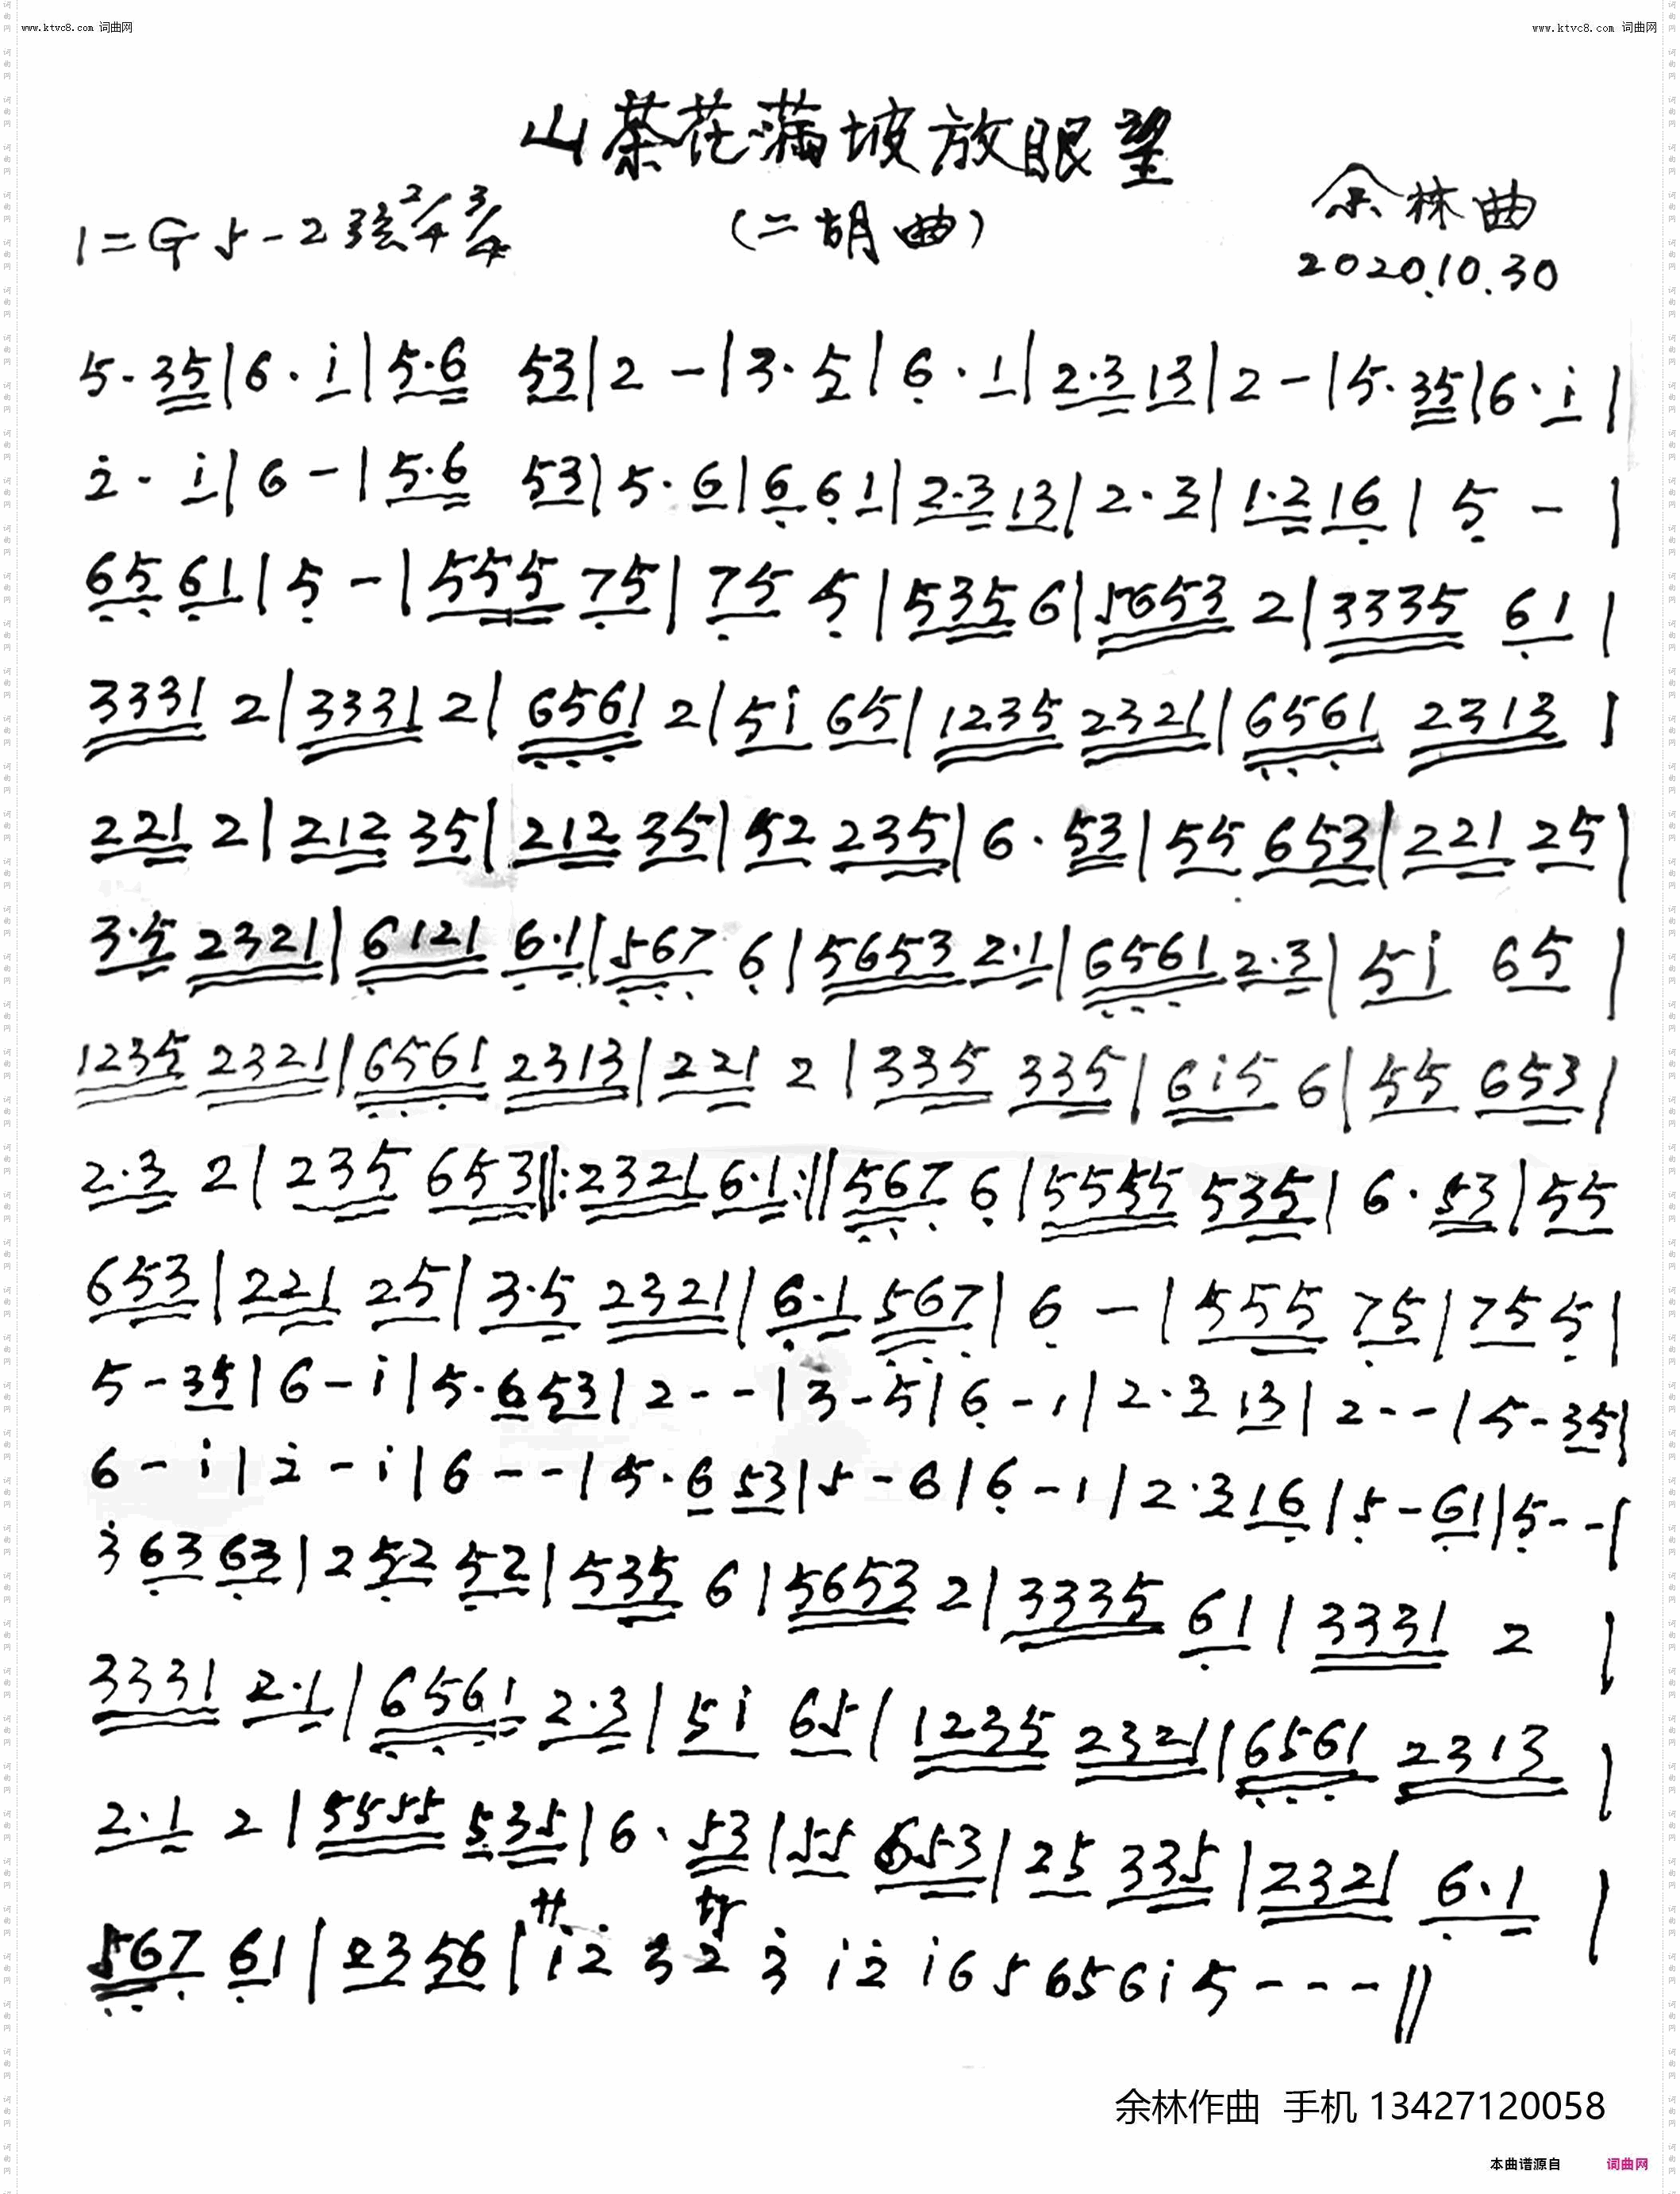 www.ktvc8.com 词曲网 www.ktvc8.com 词曲网
山茶花满坡放眼望
1=G 5-2弦 2/4 3/4 (二胡曲) 余林曲
2020.10.30
5·35|6·i|5·6 53|2-|3·5|6·1|2·3 13|2-|5·35|6·i|
2̇·i|6-|5·6 53|5·6|6 61|2·3 13|2·3|1·2 16|5-|
65 61|5-|555 75|75 5|535 6|5653 2|3335 61|
3331 2|3331 2|6561 2|5i 65|1235 2321|6561 2313|
221 2|212 35|212 35|52 235|6·53|55 653|221 25|
3·5 2321|6121 6·1|567 6|5653 2·1|6561 2·3|5i 65|
1235 2321|6561 2313|221 2|335 335|6i5 6|55 653|
2·3 2|235 653‖:2321 6·1:‖567 6|5555 535|6·53|55
653|221 25|3·5 2321|6·1 567|6-|555 75|75 5|
5-35|6-i|5·6 53|2--|3-5|6-1|2·3 13|2--|5-35|
6-i|2̇-i|6--|5·6 53|5-6|6-1|2·3 16|5-61|5--|
3̇ 63 63|2 52 52|535 6|5653 2|3335 61|3331 2|
3331 2·1|6561 2·3|5i 65|1235 2321|6561 2313|
2·1 2|5555 535|6·53|55 653|25 335|2321 6·1|
サ tr
567 61|23 56|i 2̇ 3 2̇ 3̇ i 2̇ i 6 5 6 5 6 i 5---‖
余林作曲 手机 13427120058
本曲谱源自 词曲网